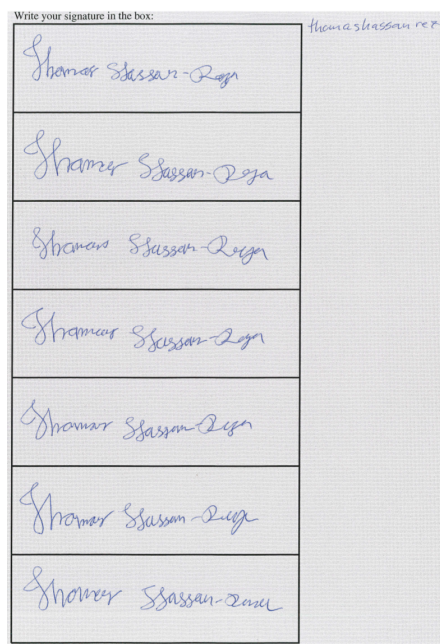 Write your signature in the box:
thomashassan rez
Thomas Hassan-Reza
Thomas Hassan-Reza
Thomas Hassan-Reza
Thomas Hassan-Reza
Thomas Hassan-Reza
Thomas Hassan-Reza
Thomas Hassan-